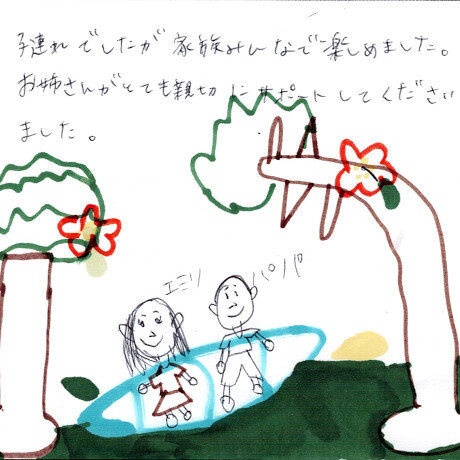 子連れでしたが家族みんなで楽しめました。
お姉さんがとても親切にサポートしてください
ました。
エミリ
パパ